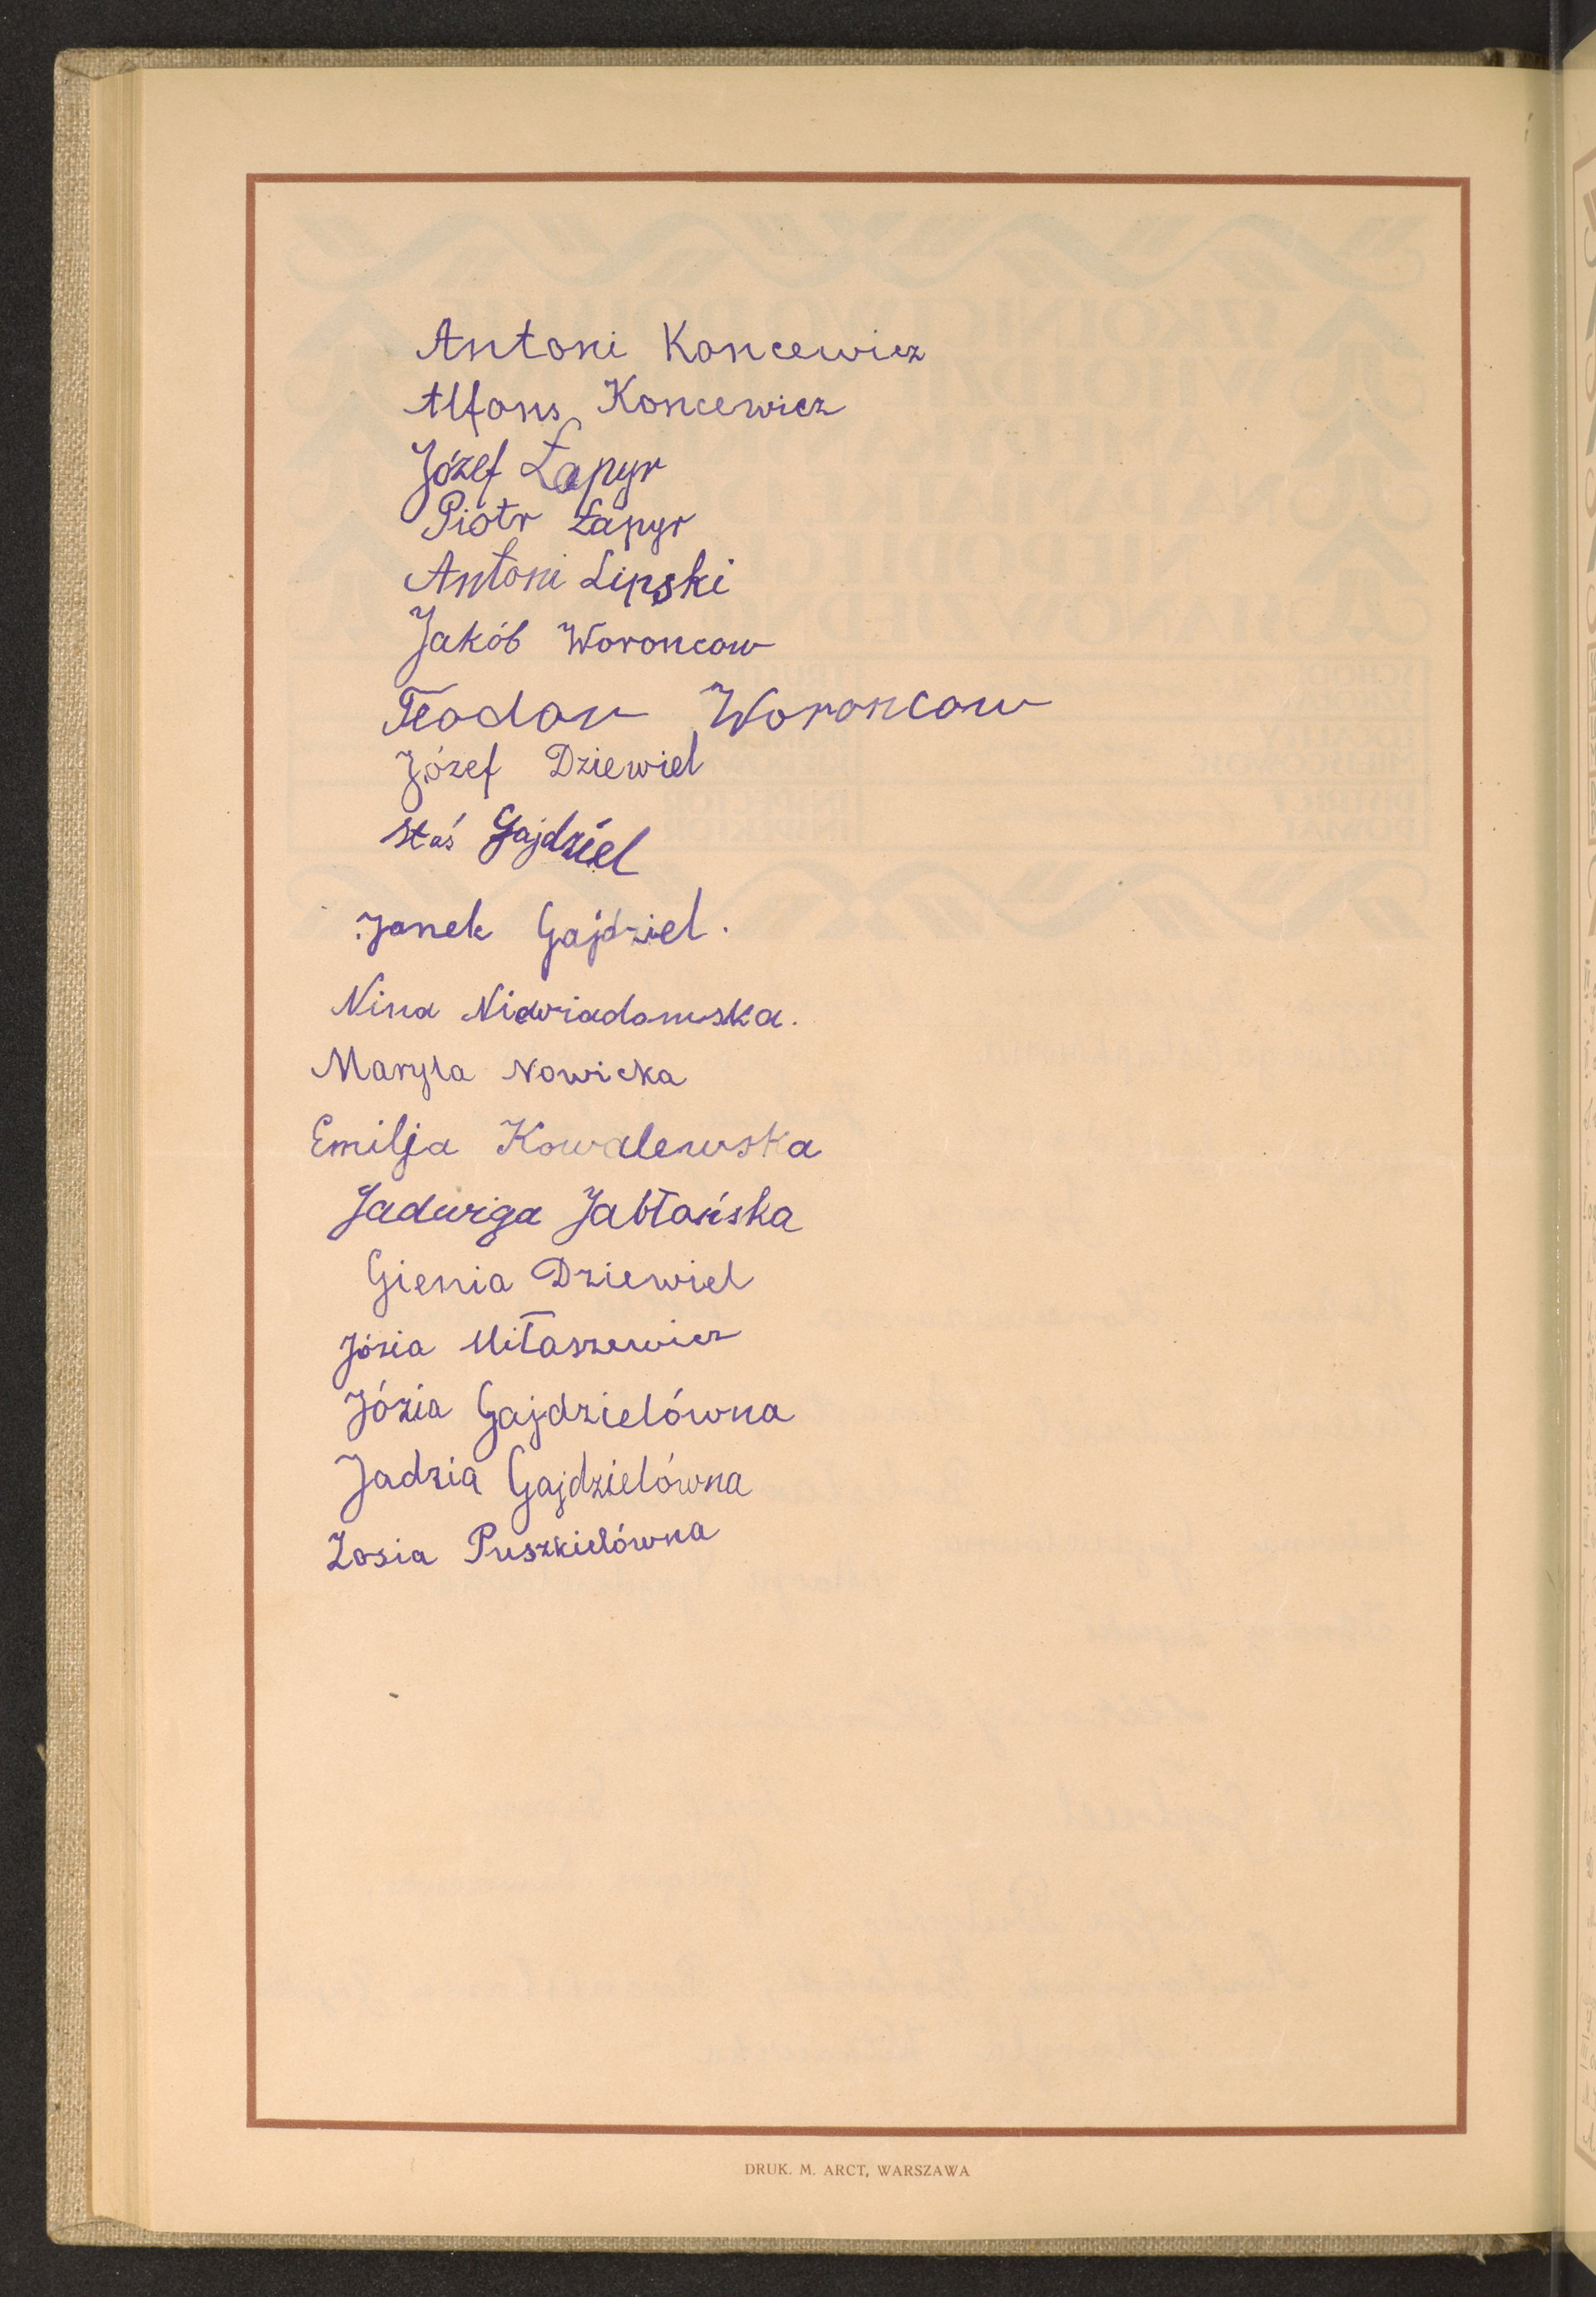 Antoni Koncewicz
Alfons Koncewicz
Józef Łapyr
Piotr Łapyr
Antoni Lipski
Jakób Woroncow
Teodor Woroncow
Józef Dziewiel
Staś Gajdziel
Janek Gajdziel.
Nina Niewiadomska.
Maryla Nowicka
Emilja Kowalewska
Jadwiga Jabłońska
Gienia Dziewiel
Józia Miłaszewicz
Józia Gajdzielówna
Jadzia Gajdzielówna
Zosia Puszkielówna
DRUK. M. ARCT, WARSZAWA